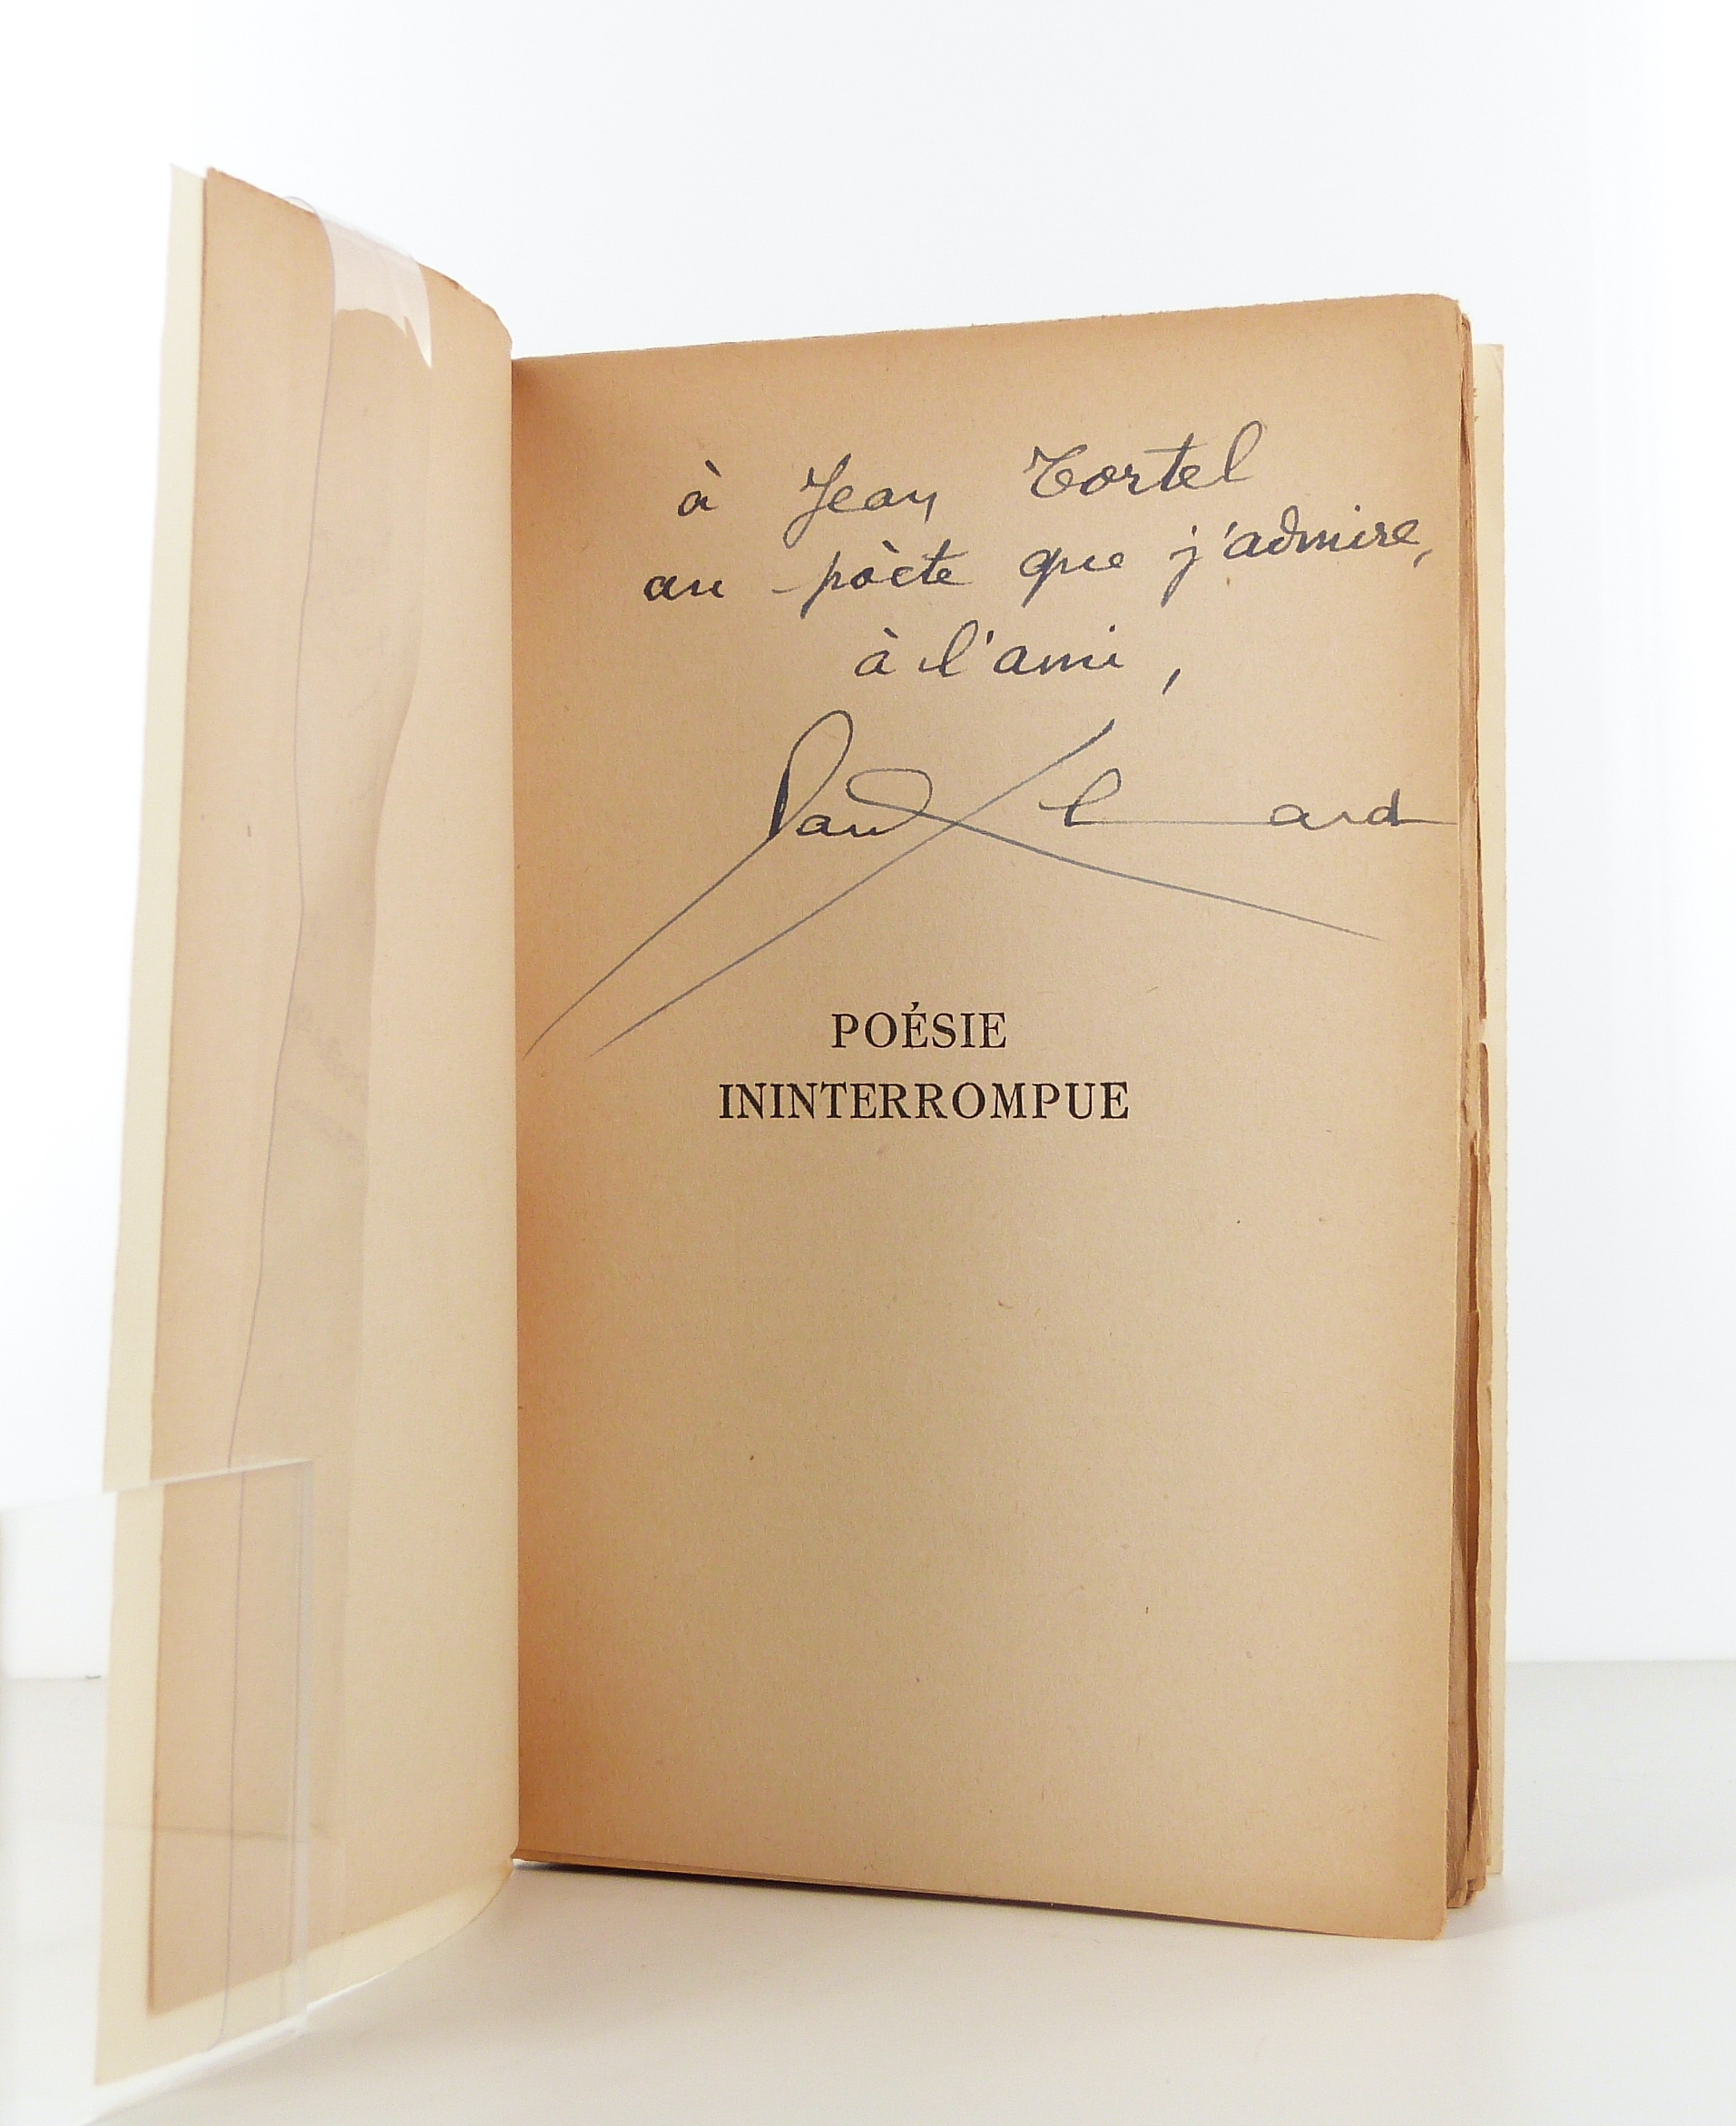 à Jean Tortel
au poète que j'admire,
à l'ami,
Paul Eluard
POÉSIE
ININTERROMPUE